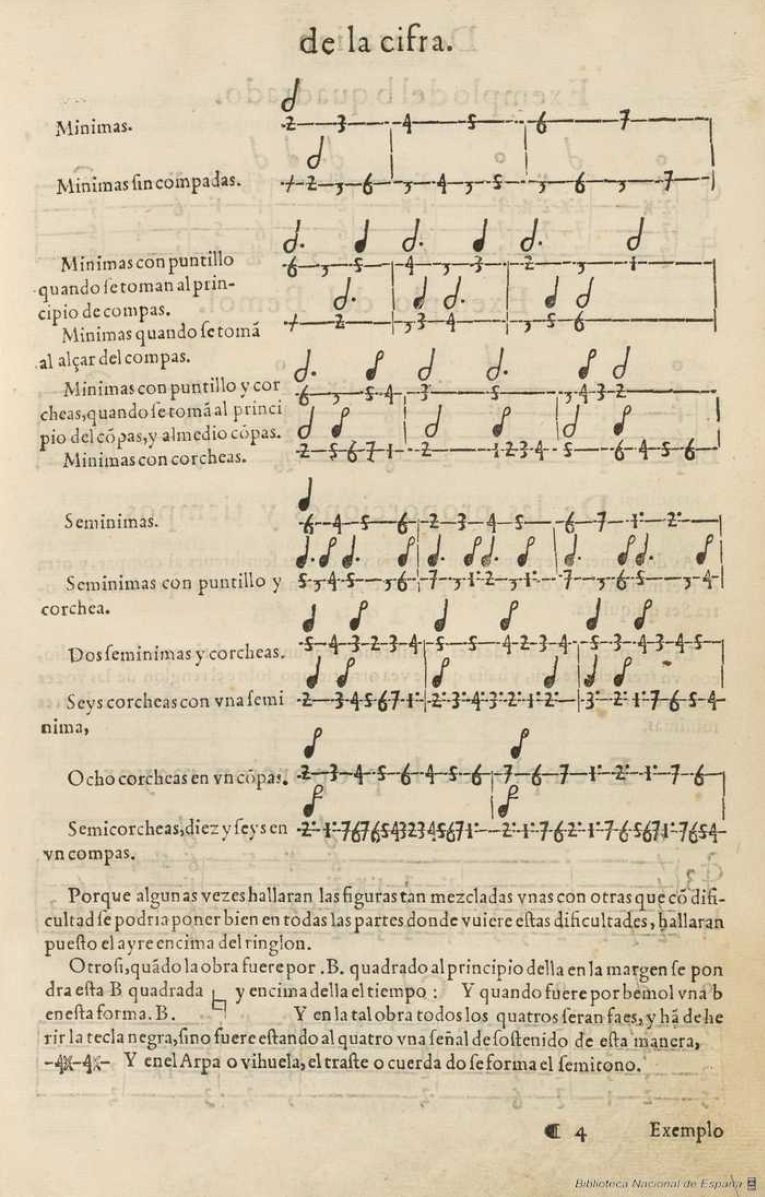 de la cifra.
Minimas.
2 3 4 5 6 7
Minimas sin compadas.
2 , 6 , 4 , 5 , 6 , 7
Minimas con puntillo
6 , 5 4 , 3 2 , 1
quando se toman al prin-
cipio de compas.
Minimas quando se tomã
2 , 3 4 , 5 6
al alçar del compas.
Minimas con puntillo y cor
6 , 5 4 3 5 , 4 3 2
cheas, quando se tomã al princi
pio del cõpas, y al medio cõpas.
Minimas con corcheas.
2 5 6 7 1 2 1 2 3 4 5 6 4 5 6
Seminimas.
6 4 5 6 2 3 4 5 6 7 1· 2·
Seminimas con puntillo y
5 , 4 5 , 6 7 , 1· 2 , 1· 7 , 6 5 , 4
corchea.
Dos seminimas y corcheas.
5 4 3 2 3 4 5 5 4 2 3 4 5 3 4 3 4 5
Seys corcheas con vna semi
2 3 4 5 6 7 1· 2· 3· 4· 3· 2· 1· 2· 3· 2· 1· 7 6 5 4
nima,
Ocho corcheas en vn cõpas.
2 3 4 5 6 4 5 6 7 6 7 1· 2· 1· 7 6
Semicorcheas, diez y seys en
2· 1· 7 6 7 6 5 4 3 2 3 4 5 6 7 1· 2· 1· 7 6 2· 1· 7 6 5 6 7 1· 7 6 5 4
vn compas.
Porque algunas vezes hallaran las figuras tan mezcladas vnas con otras que cõ difi-
cultad se podria poner bien en todas las partes donde vuiere estas dificultades, hallaran
puesto el ayre encima del ringlon.
Otrosi, quãdo la obra fuere por .B. quadrado al principio della en la margen se pon
dra esta B quadrada y encima della el tiempo : Y quando fuere por bemol vna b
en esta forma. B. Y en la tal obra todos los quatros seran faes, y hã de he
rir la tecla negra, sino fuere estando al quatro vna señal de sostenido de esta manera,
-4x-4x- Y en el Arpa o vihuela, el traste o cuerda do se forma el semitono.
¶ 4 Exemplo
Biblioteca Nacional de España